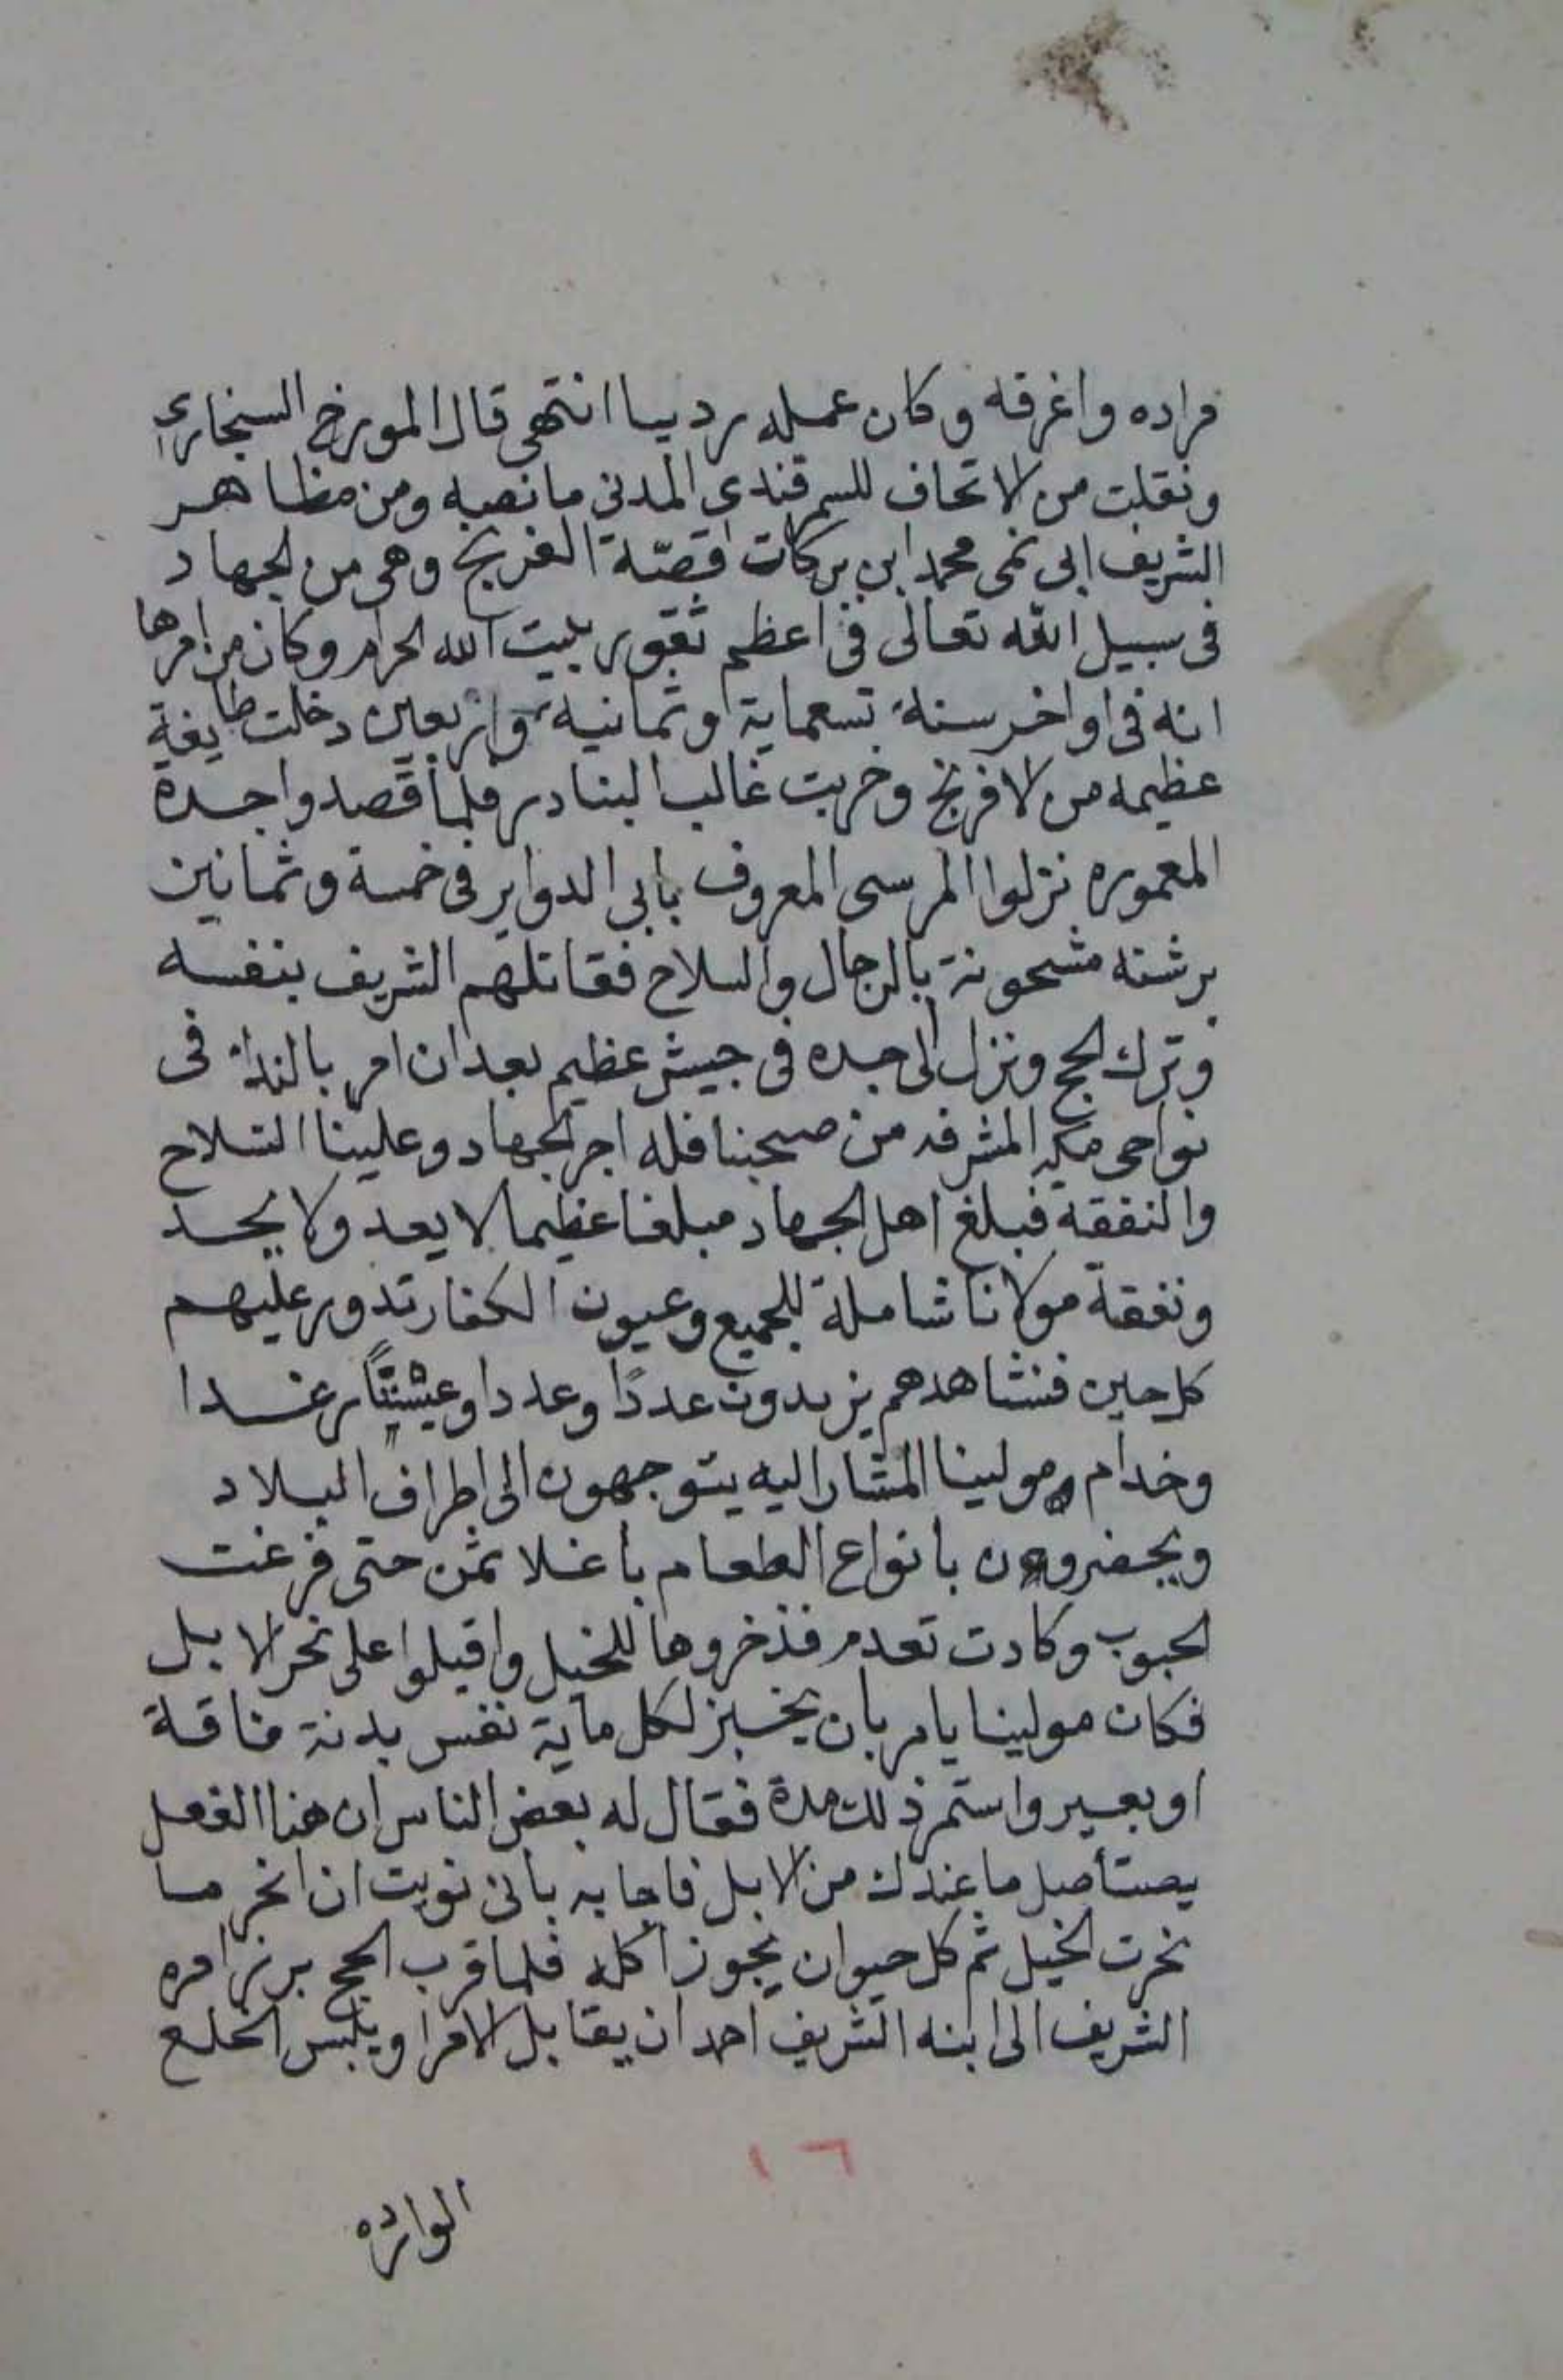 فراده واغرقه وكان عمله رديا انتهى قال المورخ السنجاري
ونقلت من الاتحاف للسمرقندى المدنى ما نصه ومن مظاهر
الشريف ابى نمى محمد ابن بركات قصّة الفرنج وهى من الجهاد
فى سبيل الله تعالى فى اعظم ثغور بليت الله الحرام وكان من امرها
انه فى اواخر سنة تسعماية وثمانية واربعين دخلت طايفة
عظيمه من الافرنج وخربت غالب البنادر فلما قصدوا جدة
المعموره نزلوا المرسى المعروف بابى الدواير فى خمسة وثمانين
برشته مشحونة بالرجال والسلاح فقاتلهم الشريف بنفسه
وترك الحج ونزل الى جده فى جيش عظيم بعد ان امر بالندا فى
نواحى مكه المشرفه من صحبنا فله اجر الجهاد وعلينا السلاح
والنفقة فبلغ اهل الجهاد مبلغا عظيما لا يعد ولا يحد
ونفقة مولانا شاملة للجميع وعيون الكفار تدور عليهم
كل حين فنشاهدهم يزيدون عددًا وعددا وعيشتًا رغدا
وخدام مولينا المشار اليه يتوجهون الى اطراف البلاد
ويحضرون بانواع الطعام باغلا ثمن حتى فرغت
الحبوب وكادت تعدم فذخروها للخيل واقبلوا على نحر الابل
فكان مولينا يامر بان يخبز لكل ماية نفس بدنة فناقة
او بعير واستمر ذلك مدة فقال له بعض الناس ان هذا الفعل
يصتأصل ما عندك من الابل فاجابه بانى نويت ان انحر ما
نحرت الخيل ثم كل حيوان يجوز أكله فلما قرب الحج برز امره
الشريف الى ابنه الشريف احمد ان يقابل الامرا ويلبس الخلع
١٦
الوارده